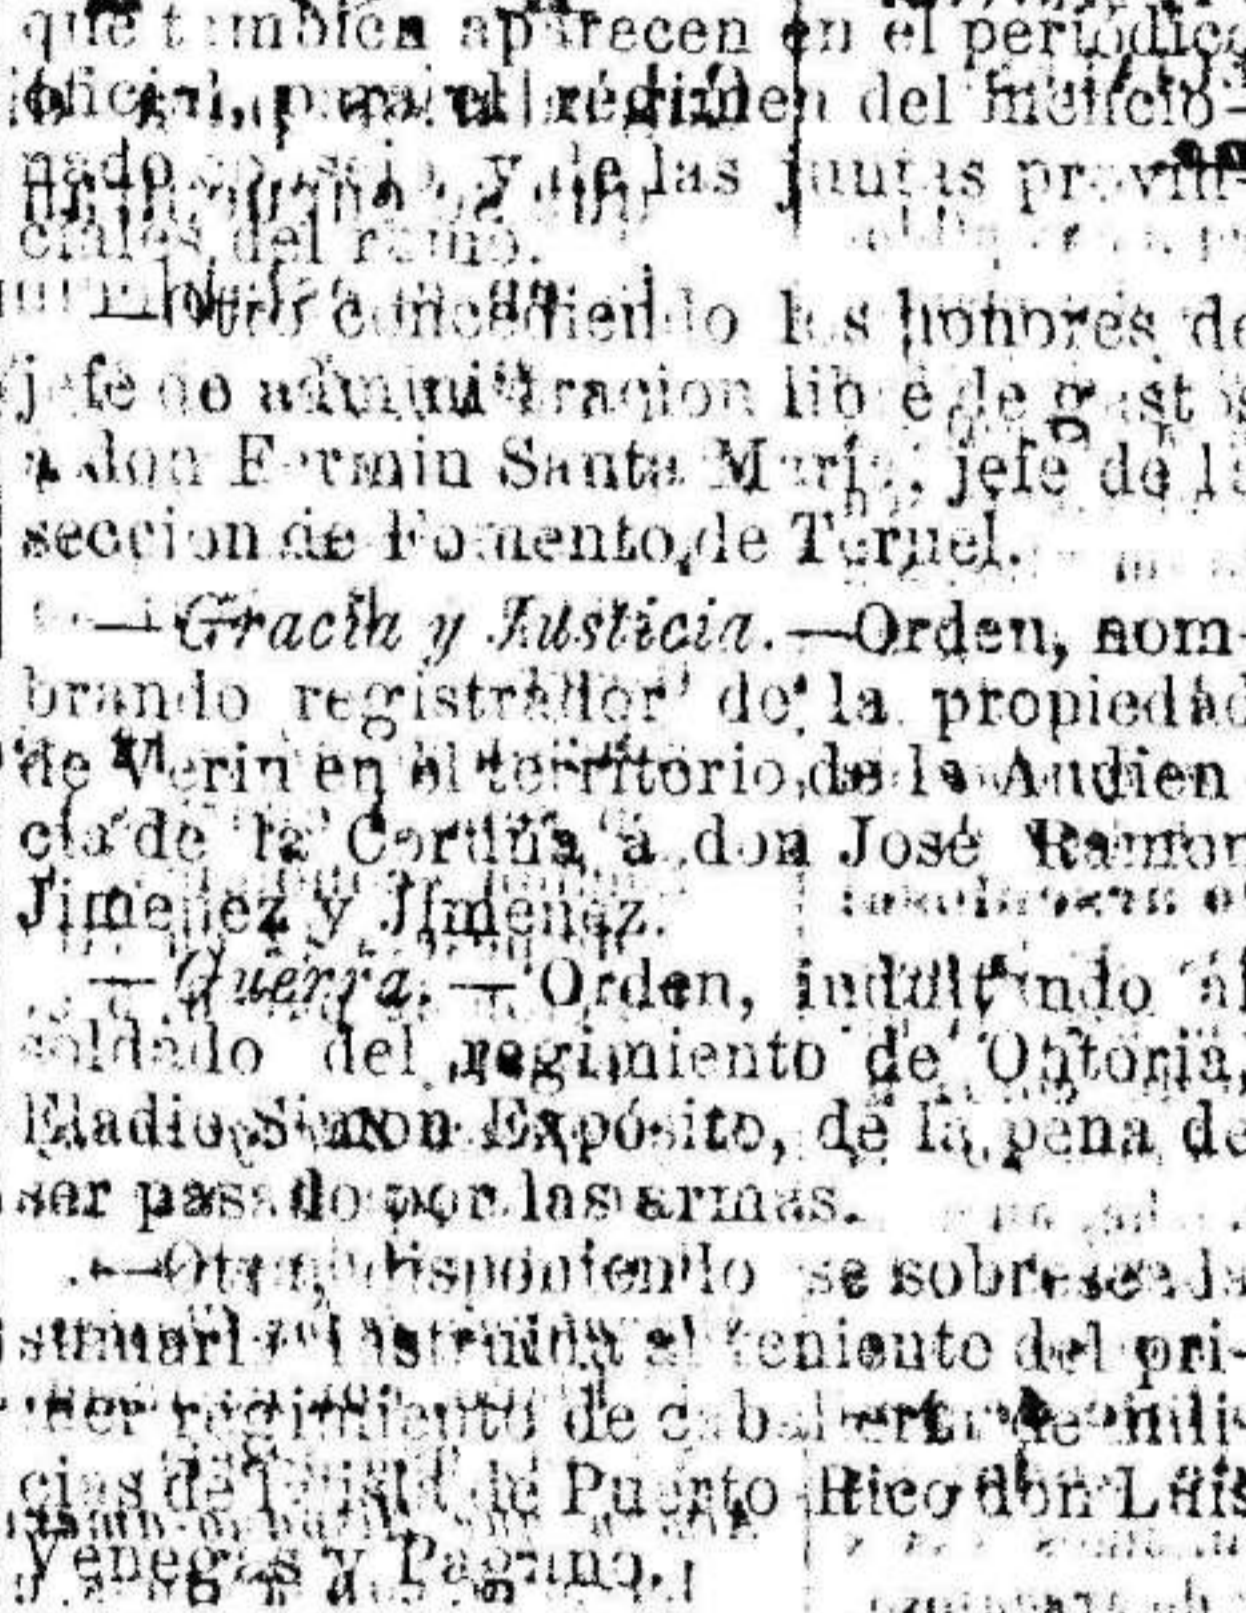 que tambien aparecen en el periódico
oficial, para el régimen del mencio-
nado consejo, y de las juntas provin-
ciales del ramo.
—Otro concediendo los honores de
jefe de administracion libre de gastos
a don Fermin Santa María, jefe de la
seccion de Fomento de Teruel.
—Gracia y Justicia.—Orden, nom-
brando registrador de la propiedad
de Verin en el territorio de la Audien
cia de la Coruña á don José Ramon
Jimenez y Jimenez.
—Guerra.—Orden, indultando al
soldado del regimiento de Ontoria,
Eladio Simon Expósito, de la pena de
ser pasado por las armas.
—Otra, disponiendo se sobresea la
sumaria instruida al teniente del pri-
mer regimiento de caballería de mili-
cias de la isla de Puerto Rico don Luis
Venegas y Pagano.